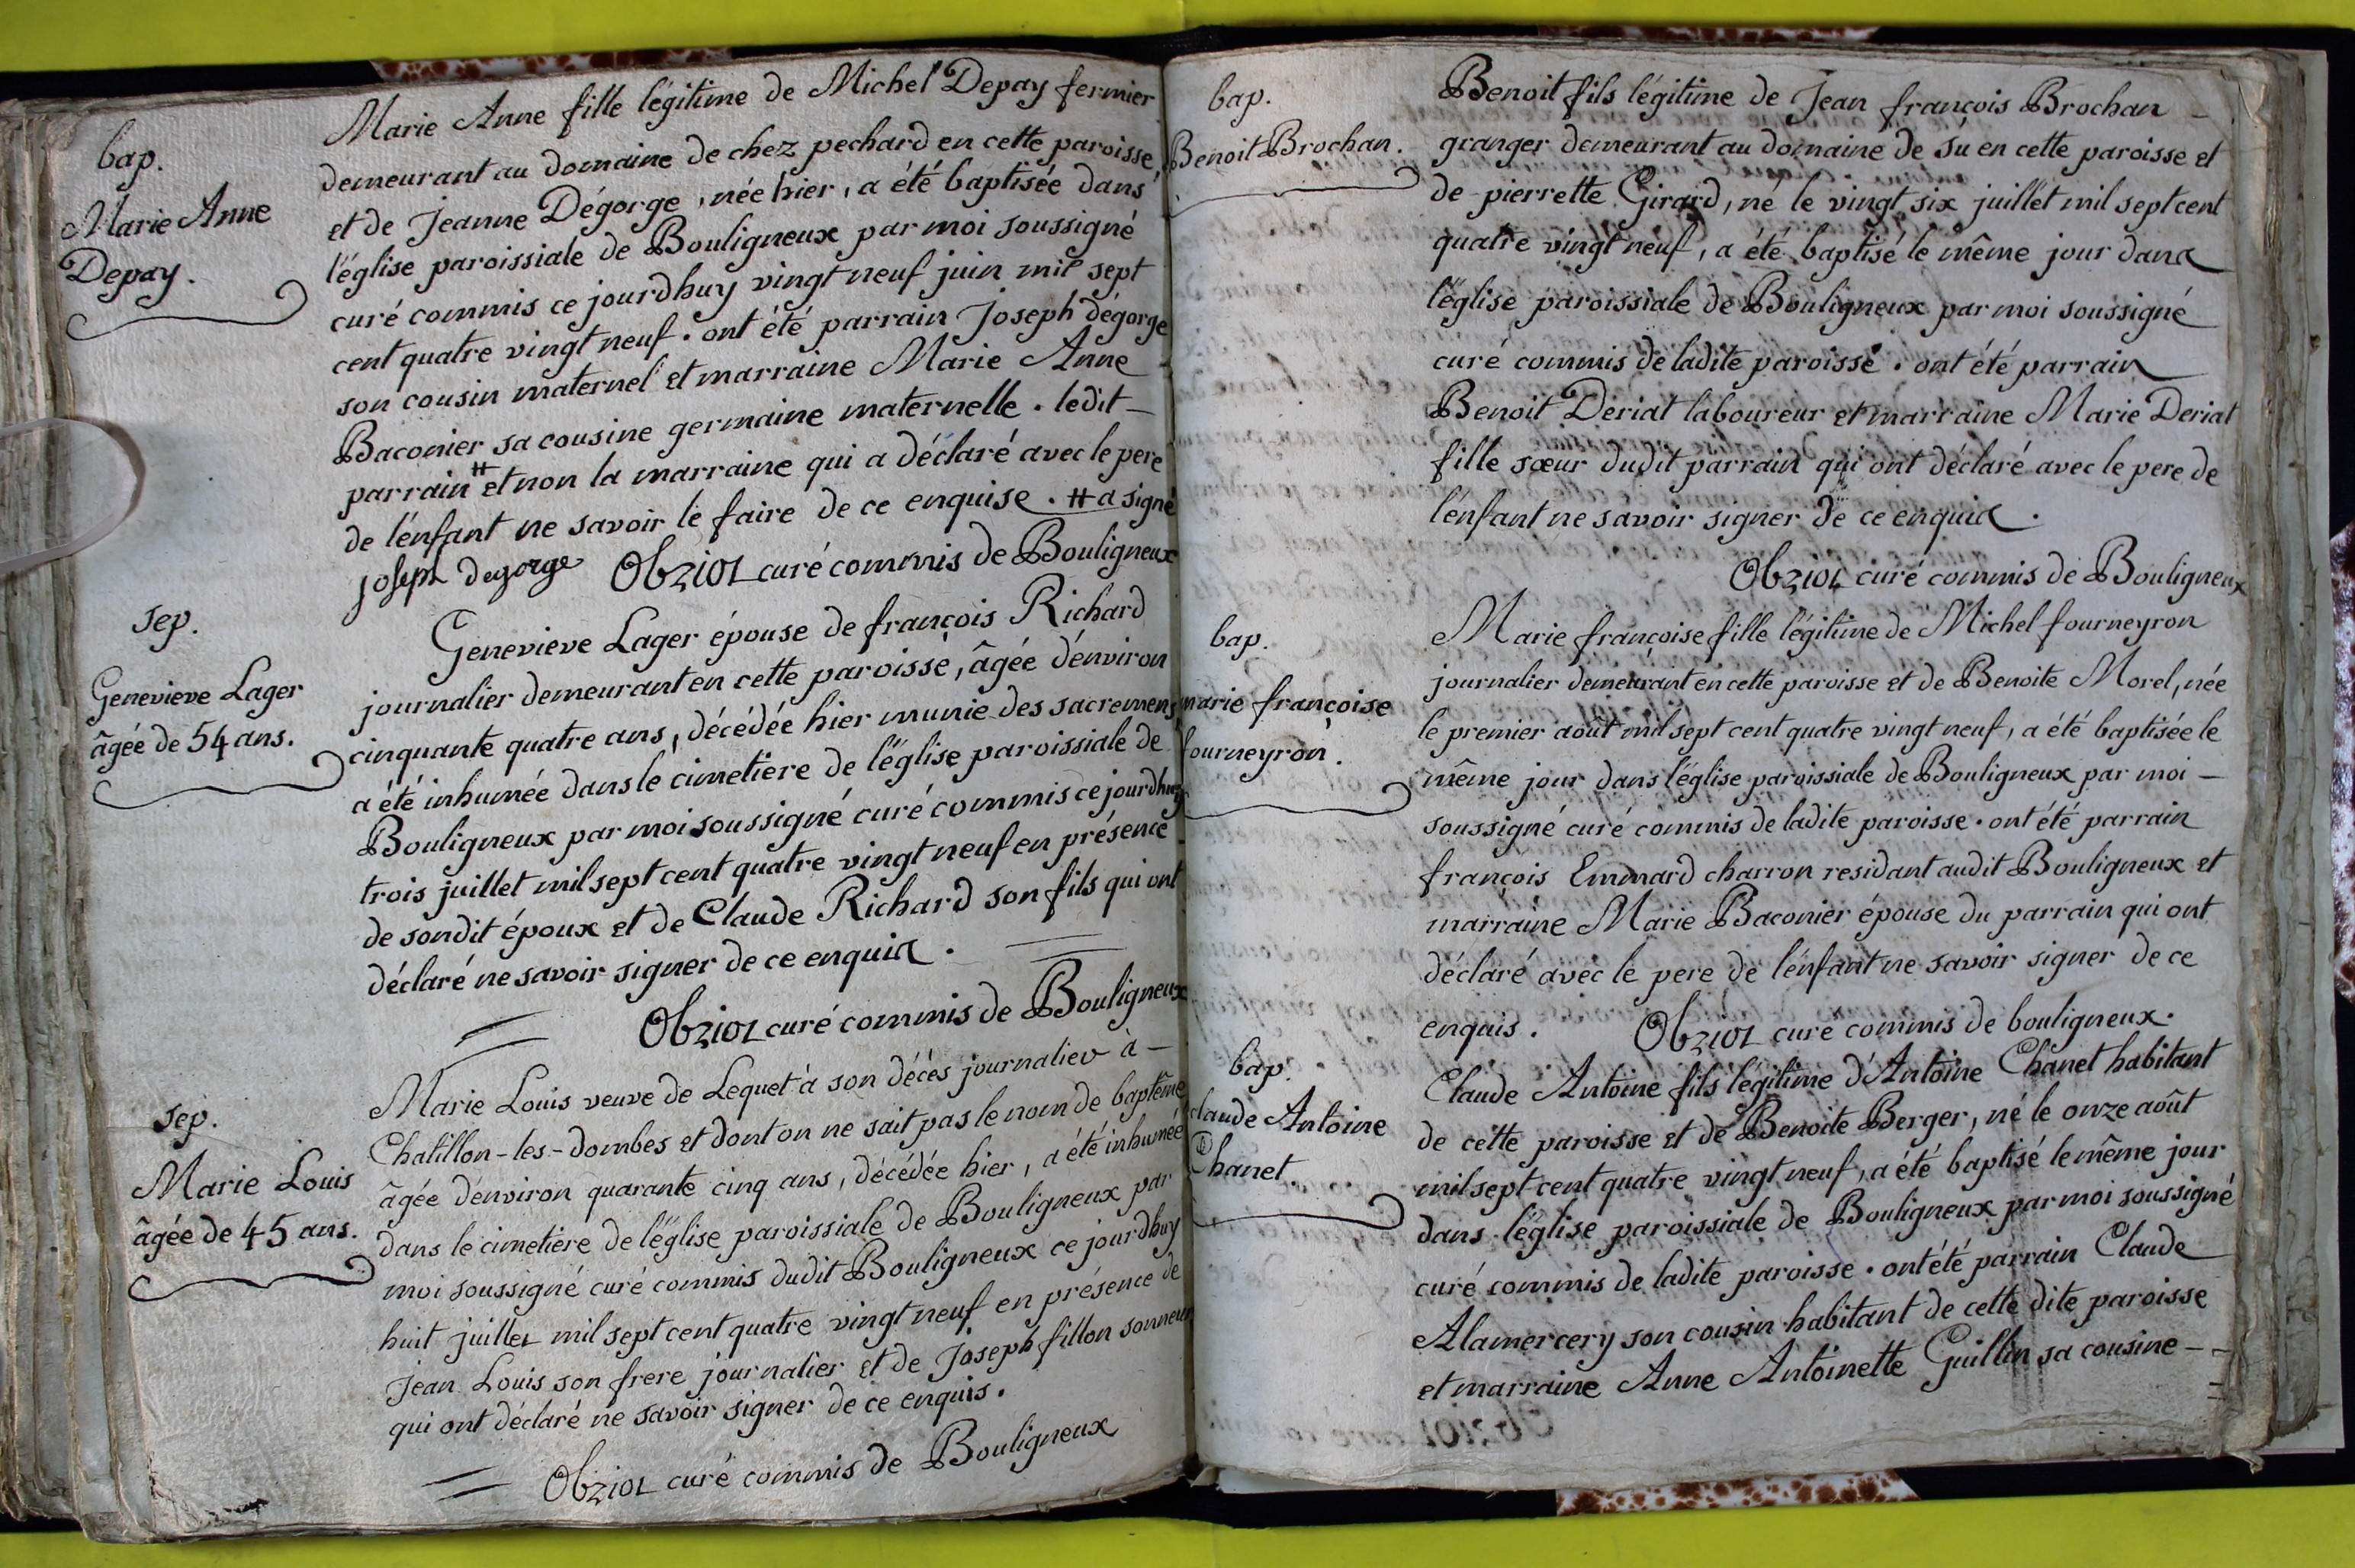 bap.
Marie Anne
Depay.
Marie Anne fille légitime de Michel Depay fermier
demeurant au domaine de chez pechard en cette paroisse,
et de Jeanne Dégorge, née hier, a été baptisée dans
l'église paroissiale de Bouligneux par moi soussigné
curé commis ce jourdhuy vingt neuf juin mil sept
cent quatre vingt neuf. ont été parrain Joseph dégorge
son cousin maternel et marraine Marie Anne
Baconier sa cousine germaine maternelle. ledit -
parrain # et non la marraine qui a déclaré avec le pere
de l'enfant ne savoir le faire de ce enquise. # a signé
joseph degorge Obziol curé commis de Bouligneux
sep.
Genevieve Lager
âgée de 54 ans.
Genevieve Lager épouse de françois Richard
journalier demeurant en cette paroisse, âgée d'environ
cinquante quatre ans, décédée hier munie des sacremens,
a été inhumée dans le cimetiere de l'église paroissiale de
Bouligneux par moi soussigné curé commis ce jourdhuy
trois juillet mil sept cent quatre vingt neuf en présence
de sondit époux et de Claude Richard son fils qui ont
déclaré ne savoir signer de ce enquis.
Obziol curé commis de Bouligneux
sep.
Marie Louis
âgée de 45 ans.
Marie Louis veuve de Lequet à son décès journalier à -
Chatillon-les-dombes et dont on ne sait pas le nom de baptême
âgée d'environ quarante cinq ans, décédée hier, a été inhumée
dans le cimetiere de l'église paroissiale de Bouligneux par
moi soussigné curé commis dudit Bouligneux ce jourdhuy
huit juillet mil sept cent quatre vingt neuf en présence de
Jean Louis son frere journalier et de Joseph fillon sonneur
qui ont déclaré ne savoir signer de ce enquis.
Obziol curé commis de Bouligneux
bap.
Benoit Brochan.
Benoit fils légitime de Jean françois Brochan -
granger demeurant au domaine de su en cette paroisse et
de pierrette Girard, né le vingt six juillet mil sept cent
quatre vingt neuf, a été baptisé le même jour dans
l'église paroissiale de Bouligneux par moi soussigné
curé commis de ladite paroisse. ont été parrain
Benoit Deriat laboureur et marraine Marie Deriat
fille sœur dudit parrain qui ont déclaré avec le pere de
l'enfant ne savoir signer de ce enquis.
Obziol curé commis de Bouligneux
bap.
marie françoise
fourneyron.
Marie françoise fille légitime de Michel fourneyron
journalier demeurant en cette paroisse et de Benoite Morel, née
le premier août mil sept cent quatre vingt neuf, a été baptisée le
même jour dans l'église paroissiale de Bouligneux par moi -
soussigné curé commis de ladite paroisse. ont été parrain
françois Emmard charron residant audit Bouligneux et
marraine Marie Baconier épouse du parrain qui ont
déclaré avec le pere de l'enfant ne savoir signer de ce
enquis. Obziol curé commis de bouligneux.
bap.
claude Antoine
Chanet.
Claude Antoine fils légitime d'Antoine Chanet habitant
de cette paroisse et de Benoite Berger, né le onze août
mil sept cent quatre vingt neuf, a été baptisé le même jour
dans l'église paroissiale de Bouligneux par moi soussigné
curé commis de ladite paroisse. ont été parrain Claude
Alamercery son cousin habitant de cette dite paroisse
et marraine Anne Antoinette Guillin sa cousine -